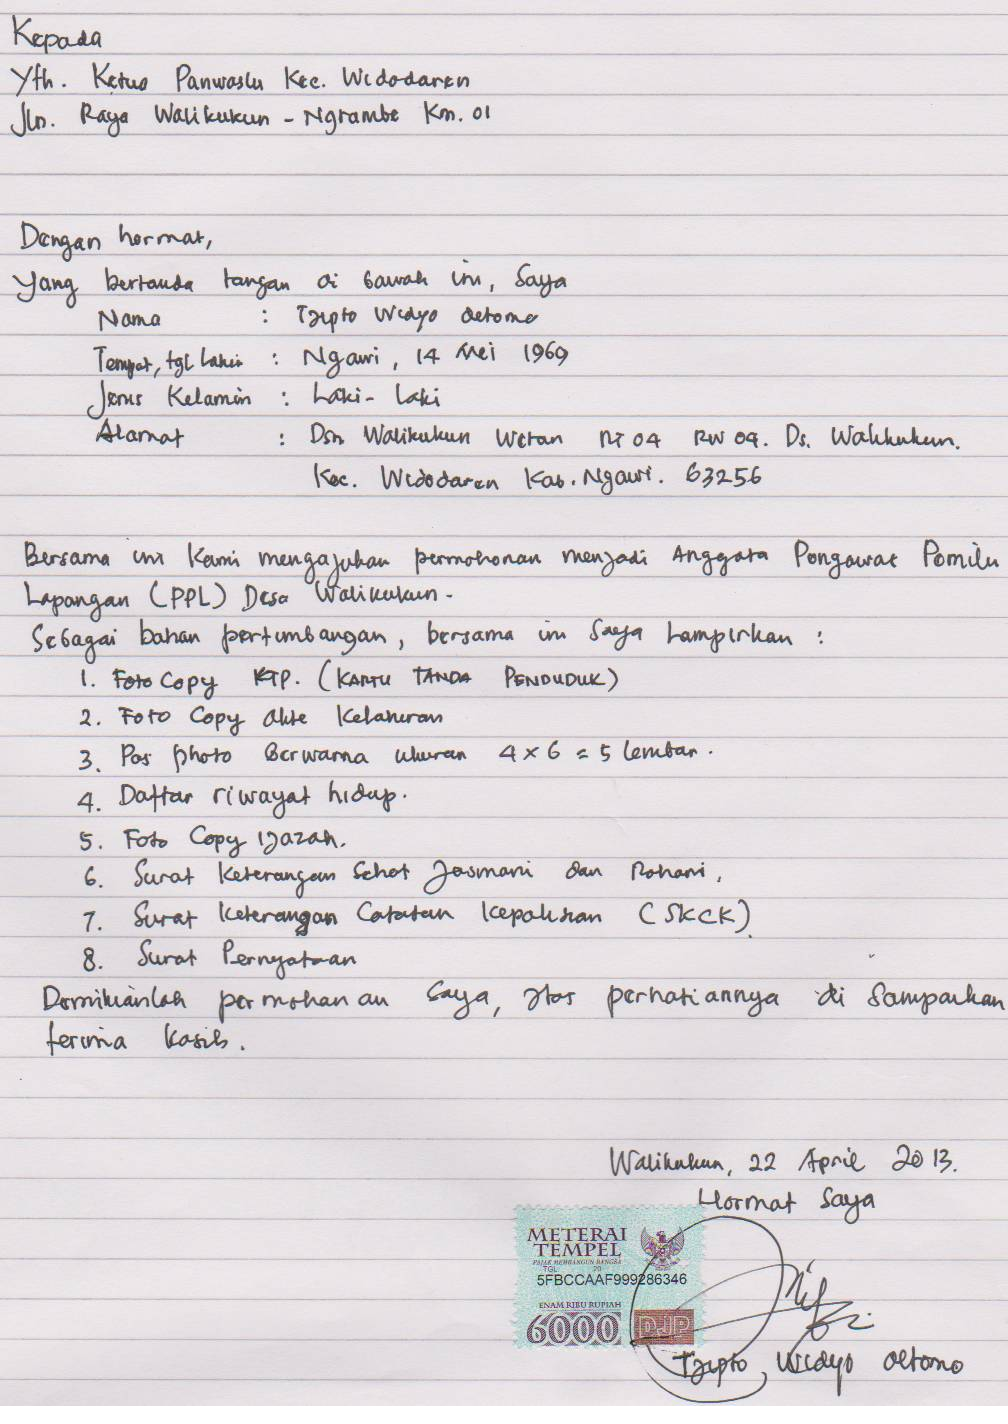 Kepada
Yth. Ketua Panwaslu Kec. Widodaren
Jln. Raya Walikukun - Ngrambe Km. 01
Dengan hormat,
Yang bertanda tangan di bawah ini, Saya
Nama : Tjipto Widyo Oetomo
Tempat, tgl Lahir : Ngawi, 14 Mei 1969
Jenis Kelamin : Laki-Laki
Alamat : Dsn Walikukun Wetan RT 04 RW 09. Ds. Walikukun.
Kec. Widodaren Kab. Ngawi. 63256
Bersama ini Kami mengajukan permohonan menjadi Anggota Pengawas Pemilu
Lapangan (PPL) Desa Walikukun-
Sebagai bahan pertimbangan, bersama ini Saya Lampirkan :
1. Foto Copy KTP. (KARTU TANDA PENDUDUK)
2. Foto Copy akte Kelahiran
3. Pas photo Berwarna ukuran 4 x 6 = 5 lembar.
4. Daftar riwayat hidup.
5. Foto Copy Ijazah.
6. Surat Keterangan Sehat Jasmani dan Rohani,
7. Surat Keterangan Catatan Kepolisian (SKCK)
8. Surat Pernyataan
Demikianlah permohonan Saya, atas perhatiannya di Sampaikan
terima Kasih.
Walikukun, 22 April 2013.
Hormat Saya
METERAI
TEMPEL
PAJAK MEMBANGUN BANGSA
TGL. 20
5FBCCAAF999286346
ENAM RIBU RUPIAH
6000 DJP
Tjipto Widyo Oetomo